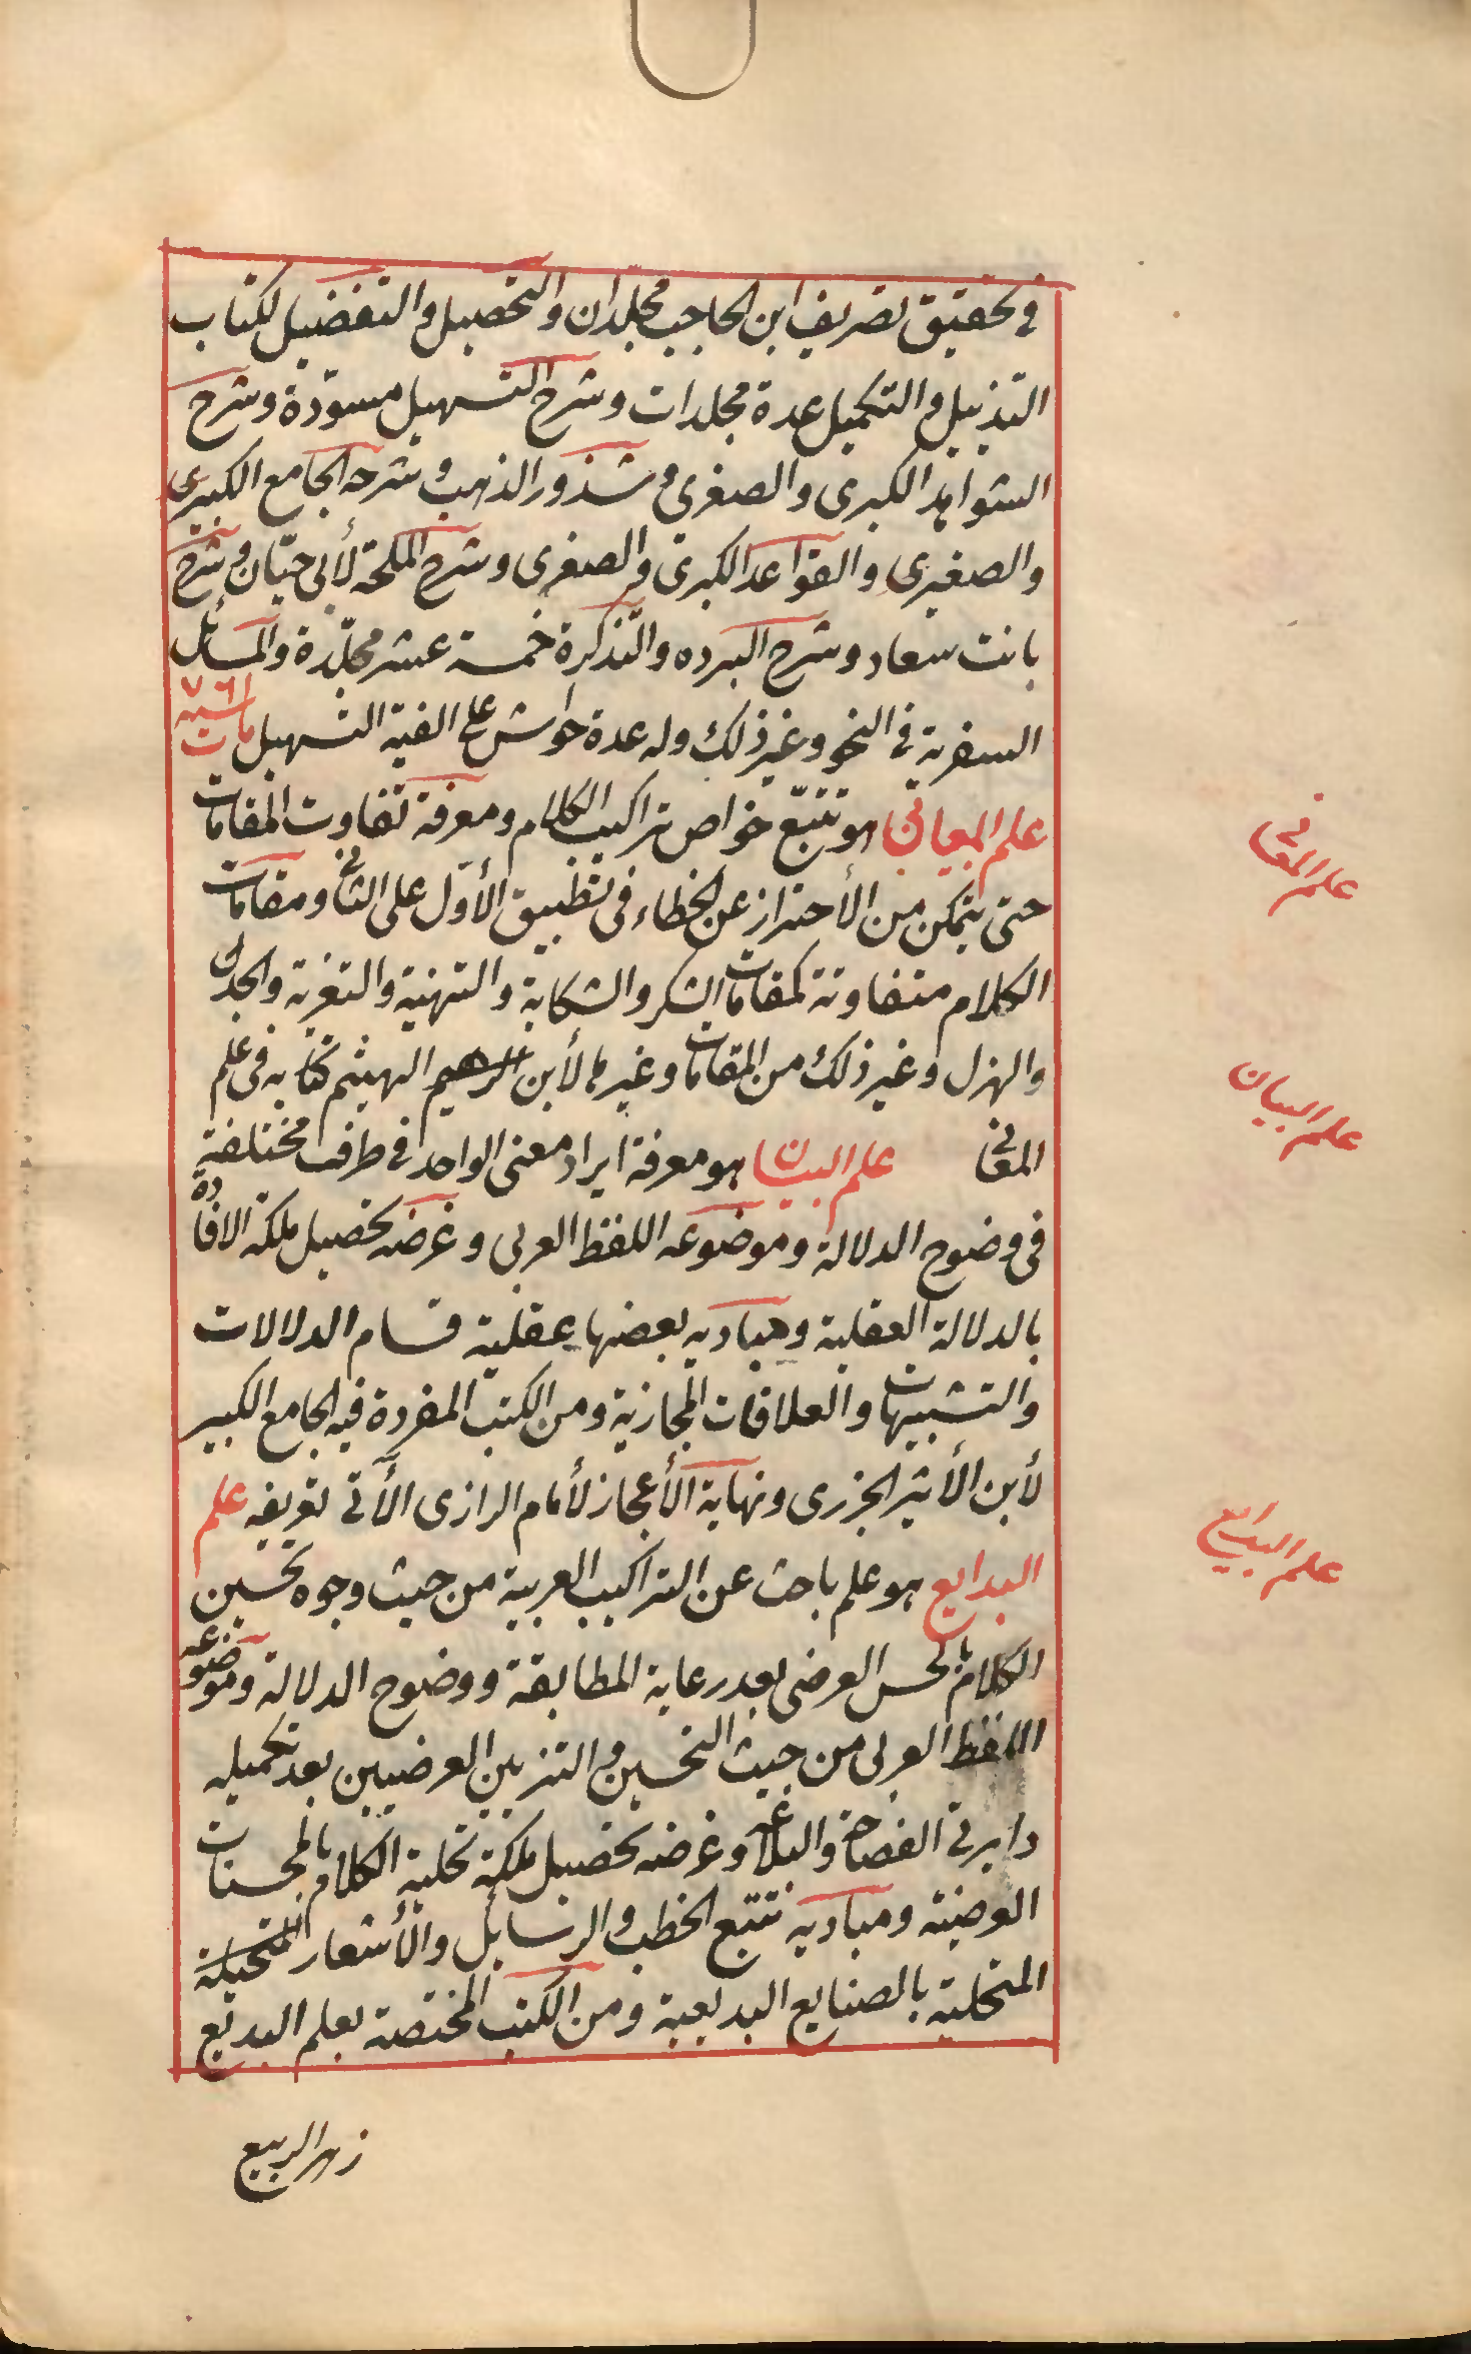 في تحقيق تصريف ابن الحاجب مجلدان والتحصيل والتفضيل لكتاب
التذييل والتكميل عدة مجلدات وشرح التسهيل مسوّدة وشرح
الشواهد الكبرى والصغرى وشذور الذهب وشرحه الجامع الكبيرى
والصغيرى والقواعد الكبرى والصغرى وشرح الملحة لأبي حيّان وشرح
بانت سعاد وشرح البرده والتذكرة خمسة عشر مجلّدة والمسائل
السفرية في النحو وغير ذلك وله عدة حواش على الفية التسهيل مات سنه ٧٦١
علم المعاني هو تتبّع خواص تراكيب الكلام ومعرفة تفاوت المقامات
حتى يتمكن من الأحتراز عن الخطاء في تطبيق الأوّل على الثاني ومقامات
الكلام متفاوتة كمقامات الشكر والشكاية والتهنية والتعزية والجد
والهزل وغير ذلك من المقامات وغيرها لأبن الهيثم كتابه في علم
المعاني علم البيان هو معرفة ايراد معنى الواحد في طرف مختلفة
في وضوح الدلالة وموضوعه اللفظ العربي وغرضه تحصيل ملكة الافادة
بالدلالة العقلية ومباديه بعضها عقلية قسام الدلالات
والتشبيهات والعلاقات المجازية ومن الكتب المفردة فيه الجامع الكبير
لأبن الأثير الجزرى ونهاية الأعجاز لأمام الرازى الأتي تعريفه علم
البدايع هو علم باحث عن التراكيب العربية من حيث وجوه تحسين
الكلام بالحسن العرضى بعد رعاية المطابقة ووضوح الدلالة وموضوعه
اللفظ العربي من حيث التحسين والتزيين العرضيين بعد تكميله
داير في الفصاحة والبلاغة وغرضه تحصيل ملكة تحلية الكلام بالمحسنات
العرضية ومباديه تتبع الخطب والرسايل والأشعار المتحيلة
المتحلية بالصنايع البديعية ومن الكتب المختصة بعلم البديع
زهر الربيع
علم المعاني
علم البيان
علم البدايع